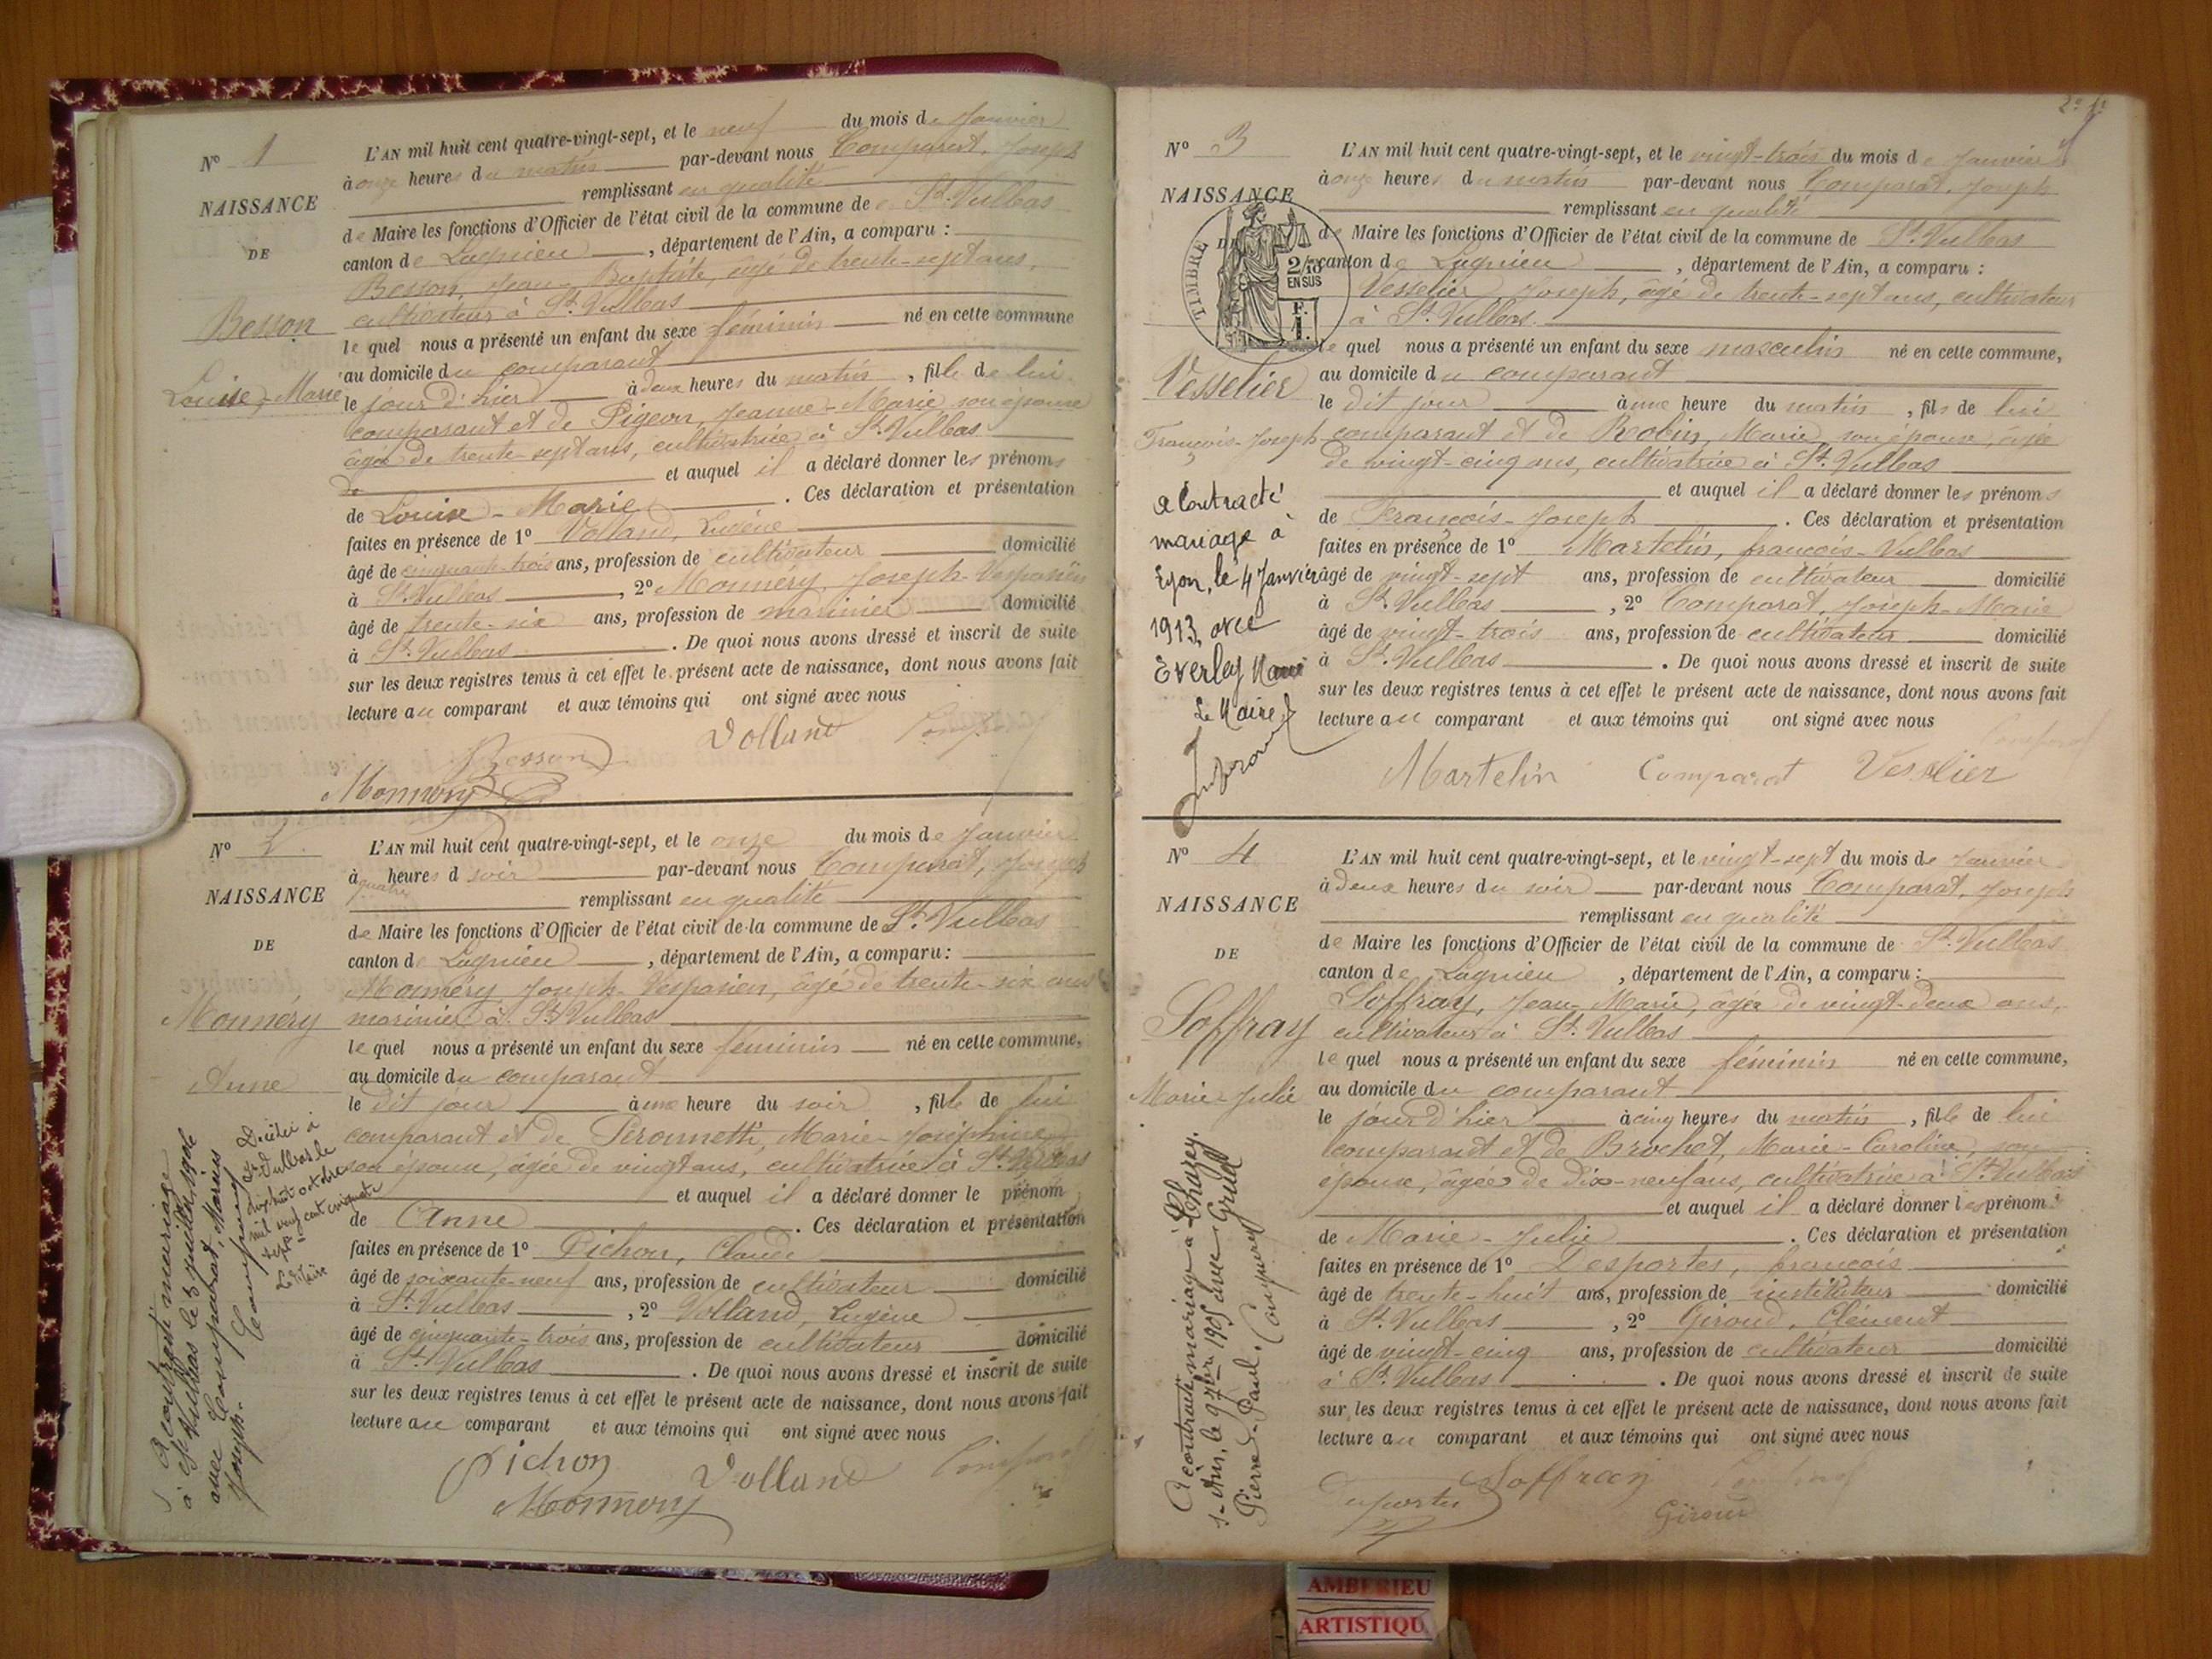 N° 1
NAISSANCE
DE
Besson
Louise-Marie
L'AN mil huit cent quatre-vingt-sept, et le neuf du mois de Janvier
à onze heures du matin par-devant nous Comparat, Joseph
remplissant en qualité
de Maire les fonctions d'Officier de l'état civil de la commune de St. Vulbas
canton de Lagnieu, département de l'Ain, a comparu :
Besson, Jean-Baptiste, âgé de trente-sept ans,
cultivateur à St. Vulbas
le quel nous a présenté un enfant du sexe féminin né en cette commune
au domicile du comparant
le jour d'hier à deux heures du matin, fille de lui
comparant et de Pigeon, Jeanne-Marie son épouse
âgée de trente-sept ans, cultivatrice à St. Vulbas
et auquel il a déclaré donner les prénoms
de Louise-Marie. Ces déclaration et présentation
faites en présence de 1° Volland, Eugène
âgé de cinquante-trois ans, profession de cultivateur domicilié
à St. Vulbas, 2° Monnéry, Joseph-Vespasien
âgé de trente-six ans, profession de marinier domicilié
à St. Vulbas. De quoi nous avons dressé et inscrit de suite
sur les deux registres tenus à cet effet le présent acte de naissance, dont nous avons fait
lecture au comparant et aux témoins qui ont signé avec nous
Volland
Besson
Monnery
N° 2
NAISSANCE
DE
Monnéry
Anne
L'AN mil huit cent quatre-vingt-sept, et le onze du mois de Janvier
à quatre heures d soir par-devant nous Comparat, Joseph
remplissant en qualité
de Maire les fonctions d'Officier de l'état civil de la commune de St. Vulbas
canton de Lagnieu, département de l'Ain, a comparu :
Monnéry Joseph-Vespasien, âgé de trente-six ans
marinier à St. Vulbas
le quel nous a présenté un enfant du sexe féminin né en cette commune,
au domicile du comparant
le dit jour à une heure du soir, fille de lui
comparant et de Peronnetti, Marie-Joséphine
son épouse, âgée de vingt ans, cultivatrice à St. Vulbas
et auquel il a déclaré donner le prénom
de Anne. Ces déclaration et présentation
faites en présence de 1° Pichon, Claude
âgé de soixante-neuf ans, profession de cultivateur domicilié
à St. Vulbas, 2° Volland, Eugène
âgé de cinquante-trois ans, profession de cultivateur domicilié
à St. Vulbas. De quoi nous avons dressé et inscrit de suite
sur les deux registres tenus à cet effet le présent acte de naissance, dont nous avons fait
lecture au comparant et aux témoins qui ont signé avec nous
Pichon Volland
Monnery
A contracté mariage
à St Vulbas le juillet
avec Comparat, Marius
Joseph.
Décédée à
St Vulbas le
dix-huit octobre
mil neuf cent cinquante
Le Maire
2e f.
N° 3
NAISSANCE
DE
TIMBRE
2/10
EN SUS
F.
1.
Vesselier
François-Joseph
a contracté
mariage à
Lyon, le 4 Janvier
1913, avec
Everley Marie
Le Maire
L'AN mil huit cent quatre-vingt-sept, et le vingt-trois du mois de Janvier
à onze heures du matin par-devant nous Comparat, Joseph
remplissant en qualité
de Maire les fonctions d'Officier de l'état civil de la commune de St. Vulbas
canton de Lagnieu, département de l'Ain, a comparu :
Vesselier Joseph, âgé de trente-sept ans, cultivateur
à St. Vulbas.
le quel nous a présenté un enfant du sexe masculin né en cette commune,
au domicile du comparant
le dit jour à une heure du matin, fils de lui
comparant et de Robin, Marie, son épouse, âgée
de vingt-cinq ans, cultivatrice à St. Vulbas
et auquel il a déclaré donner les prénoms
de François-Joseph. Ces déclaration et présentation
faites en présence de 1° Martelin, françois-Vulbas
âgé de vingt-sept ans, profession de cultivateur domicilié
à St. Vulbas, 2° Comparat, Joseph-Marie
âgé de vingt-trois ans, profession de cultivateur domicilié
à St. Vulbas. De quoi nous avons dressé et inscrit de suite
sur les deux registres tenus à cet effet le présent acte de naissance, dont nous avons fait
lecture au comparant et aux témoins qui ont signé avec nous
Martelin Comparat Vesselier
N° 4
NAISSANCE
DE
Soffray
Marie-Julie
L'AN mil huit cent quatre-vingt-sept, et le vingt-sept du mois de Janvier
à deux heures du soir par-devant nous Comparat, Joseph
remplissant en qualité
de Maire les fonctions d'Officier de l'état civil de la commune de St. Vulbas
canton de Lagnieu, département de l'Ain, a comparu :
Soffray, Jean-Marie, âgé de vingt-deux ans,
cultivateur à St. Vulbas
le quel nous a présenté un enfant du sexe féminin né en cette commune,
au domicile du comparant
le jour d'hier à cinq heures du matin, fille de lui
comparant et de Brochet, Marie-Caroline, son
épouse, âgée de dix-neuf ans, cultivatrice à St. Vulbas
et auquel il a déclaré donner les prénoms
de Marie-Julie. Ces déclaration et présentation
faites en présence de 1° Desportes, françois
âgé de trente-huit ans, profession de instituteur domicilié
à St. Vulbas, 2° Giroud, Clément
âgé de vingt-cinq ans, profession de cultivateur domicilié
à St. Vulbas. De quoi nous avons dressé et inscrit de suite
sur les deux registres tenus à cet effet le présent acte de naissance, dont nous avons fait
lecture au comparant et aux témoins qui ont signé avec nous
Soffray
Desportes
Giroud
A contracté mariage à Chazey-
s-Ain, le 9 7bre 1905 avec Grudl
Pierre-Paul.
AMBERIEU
ARTISTIQU